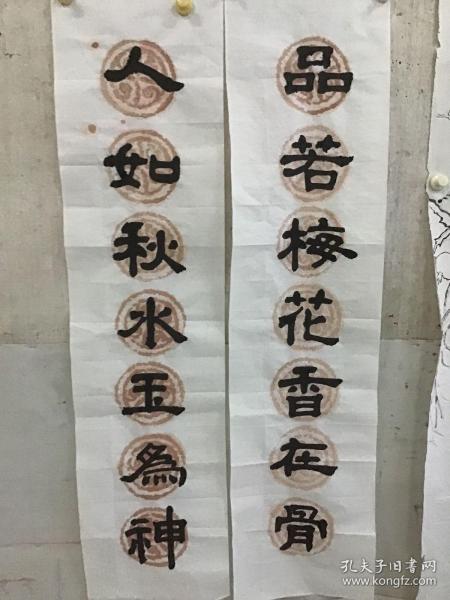 品若梅花香在骨
人如秋水玉為神
孔夫子旧书网
www.kongfz.com